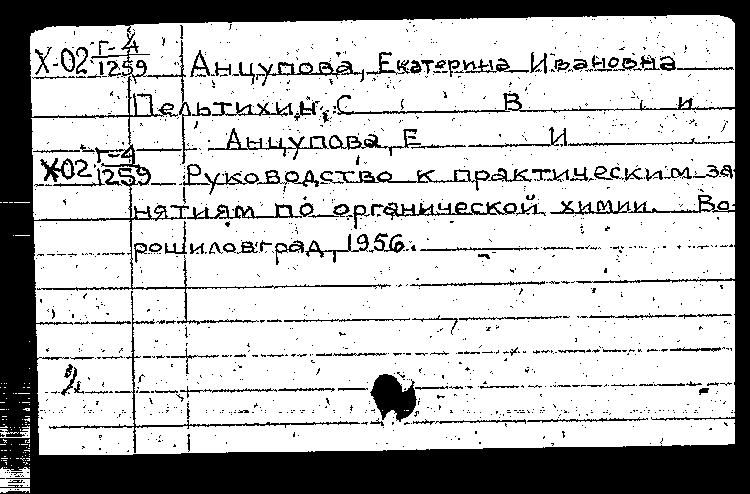 Х-02 Г-4/1259 Анцупова, Екатерина Ивановна
Пельтихин, С В и
Анцупова, Е И
Х-02 Г-4/1259 Руководство к практическим за-
нятиям по органической химии. Во-
рошиловград, 1956.
2